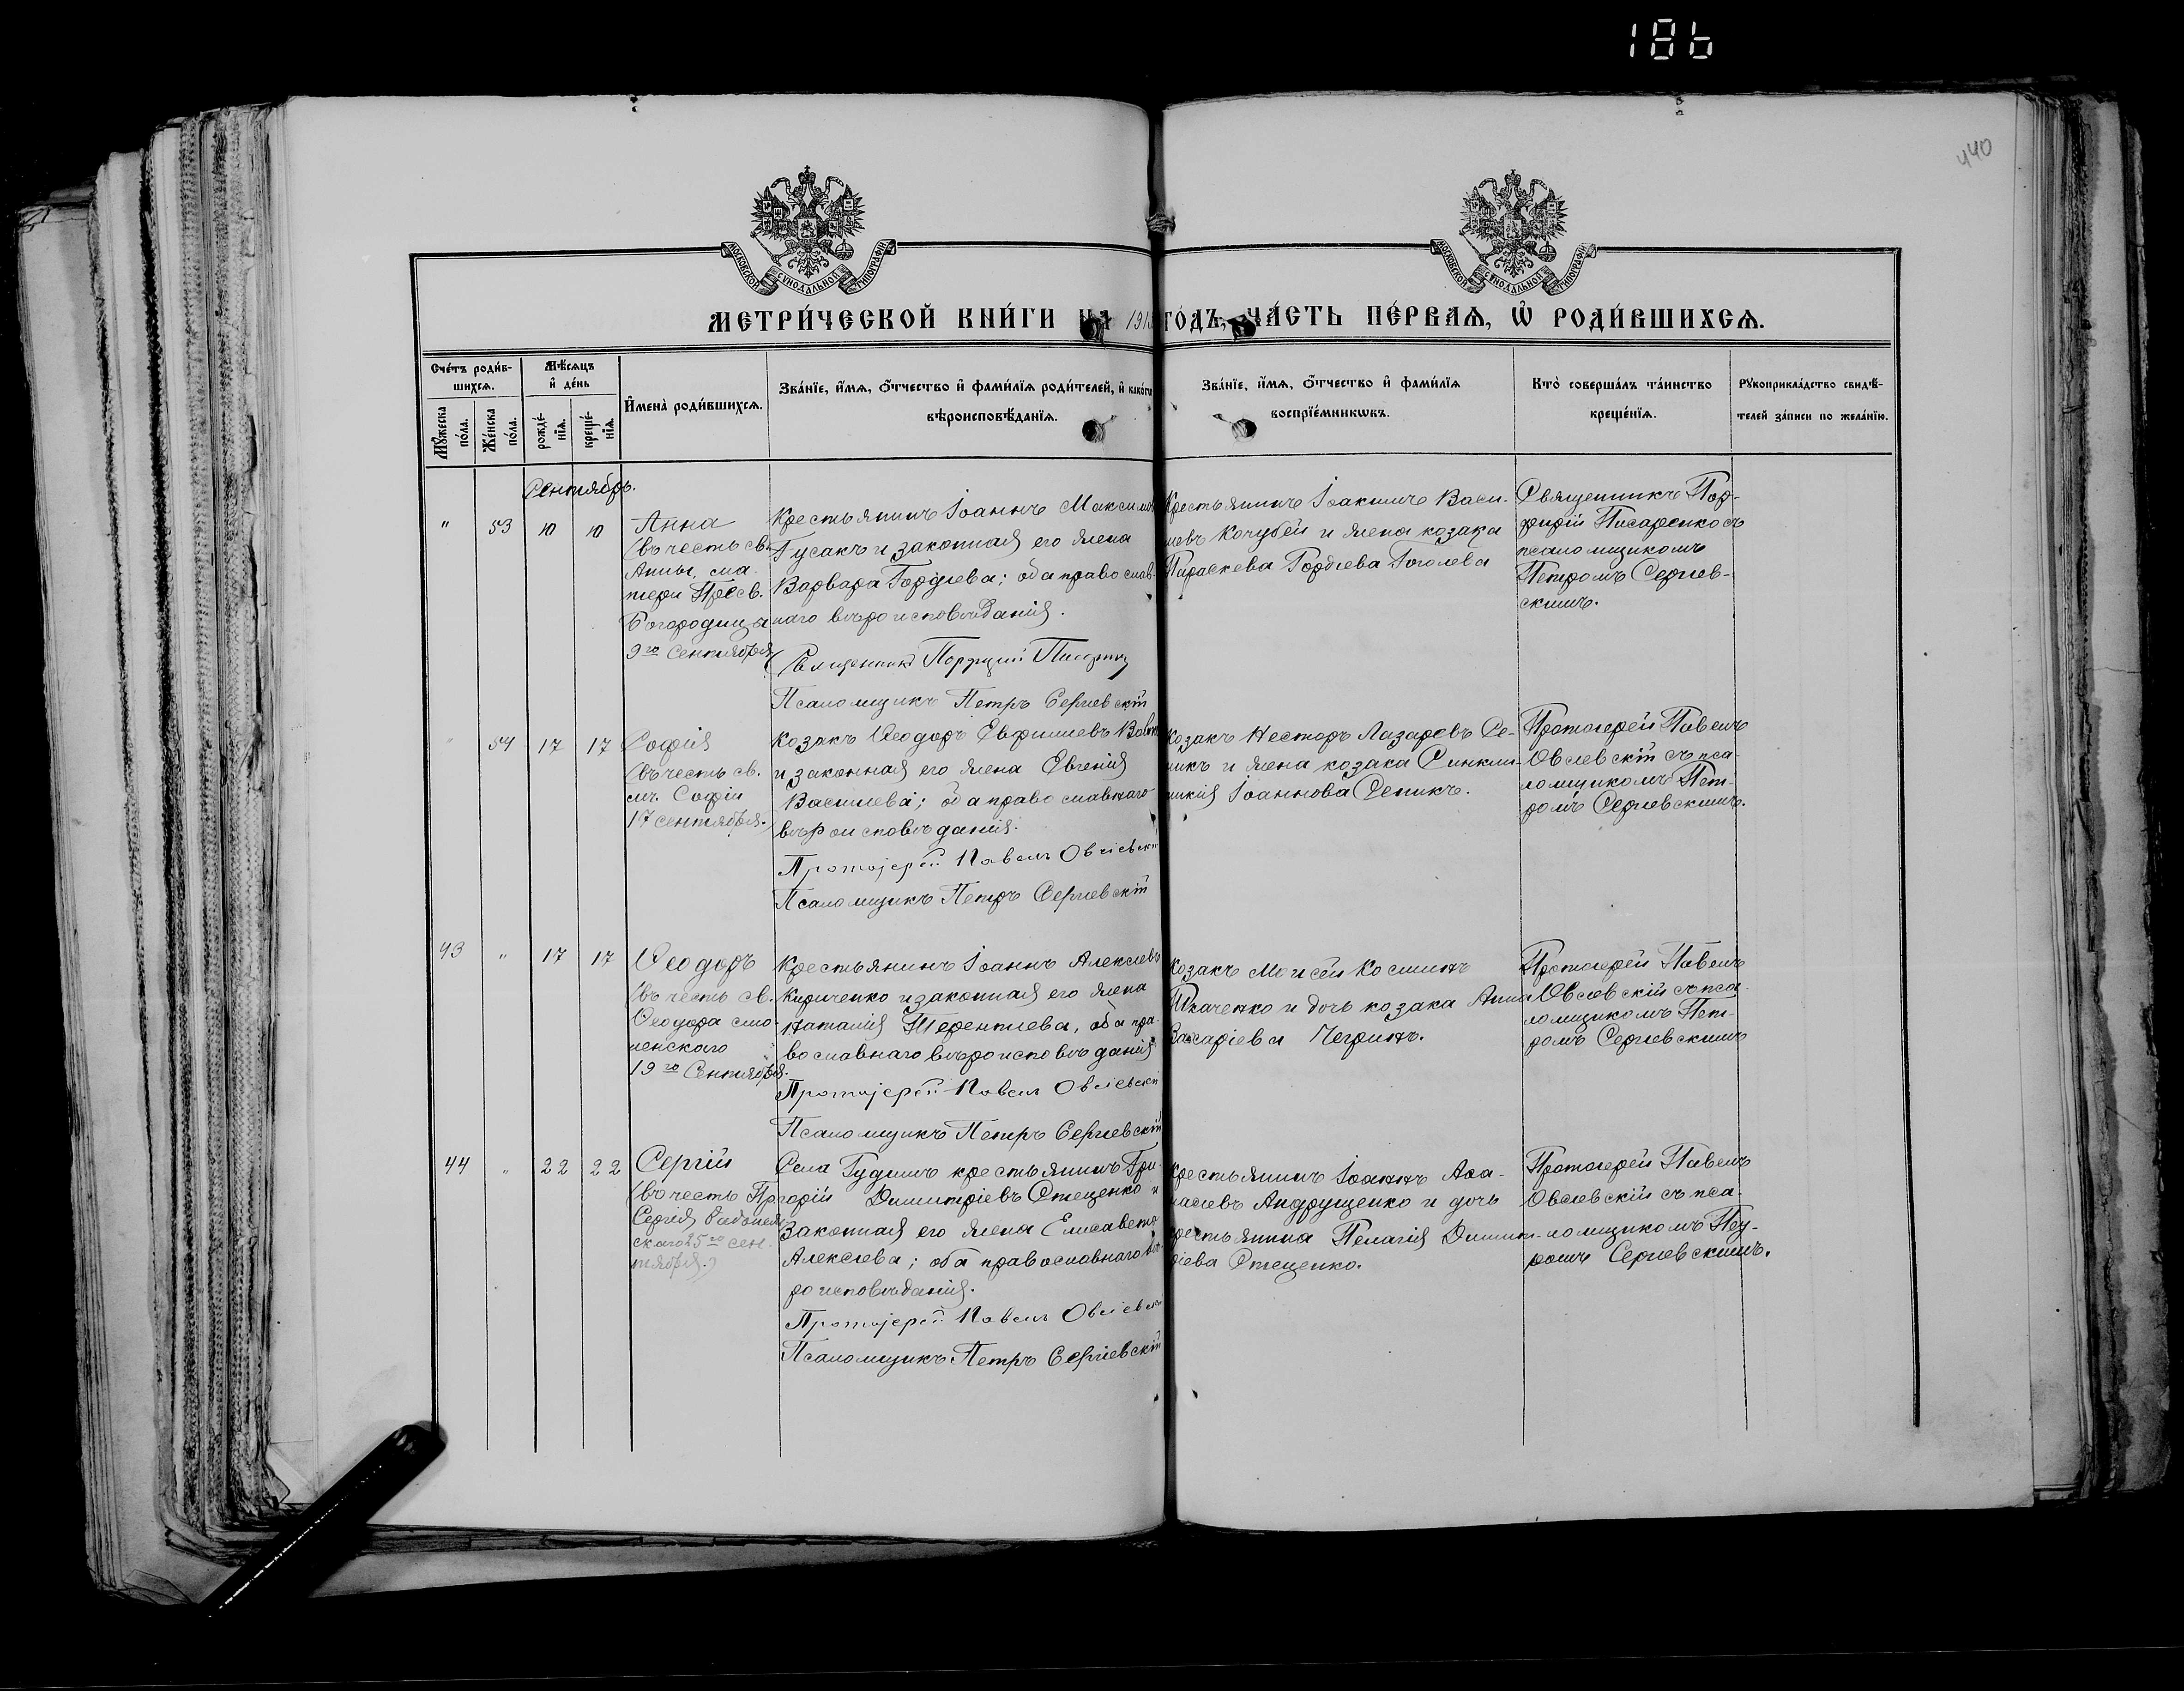 186
440
МОСКОВСКОЙ СѴНОДАЛЬНОЙ ТИПОГРАФІИ
МОСКОВСКОЙ СѴНОДАЛЬНОЙ ТИПОГРАФІИ
МЕТРИ́ЧЕСКОЙ КНИ́ГИ НА 191 ГО́ДЪ, ЧА́СТЬ ПЕ́РВАѦ, Ѡ҆ РОДИ́ВШИХСѦ.
Сче́тъ роди́в-
шихсѧ.
Мꙋ́жеска по́ла.
Же́нска по́ла.
Мѣ́сѧцъ
и҆ де́нь
рожде́-
нїѧ.
креще́-
нїѧ.
И҆мена̀ роди́вшихсѧ.
Зва́нїе, и҆́мѧ, ѻ҆́тчество и҆ фами́лїѧ роди́телей, и҆ како́гѡ
вѣроисповѣ́данїѧ.
Зва́нїе, и҆́мѧ, ѻ҆́тчество и҆ фами́лїѧ
воспрїе́мникѡвъ.
Кто̀ соверша́лъ та́инство
креще́нїѧ.
Рꙋкоприкла́дство свидѣ́-
телей за́писи по жела́нїю.
Сентябрь.
" 53 10 10
Анна
(въ честь св.
Анны, ма-
тери Пресв.
Богородицы
9го Сентября)
Крестьянинъ Іоаннъ Максимов
Гусакъ и законная его жена
Варвара Гордіева; оба православ-
наго вѣроисповѣданія.
Священникъ Порфирій Писаренко
Псаломщикъ Петръ Сергіевскій
Крестьянинъ Іоакимъ Васи-
левъ Кочубей и жена козака
Параскева Гордіева Гоголева
Священникъ Пор-
фирій Писаренко съ
псаломщикомъ
Петромъ Сергіев-
скимъ.
" 54 17 17
Софія
(въ честь св.
мч. Софіи
17 сентября.)
Козакъ Ѳеодоръ Евфиміевъ
и законная его жена Евгенія
Василіева; оба православнаго
вѣроисповѣданія.
Протоіерей Павелъ Овсіевскій
Псаломщикъ Петръ Сергіевскій
Козакъ Несторъ Лазаревъ Ре-
пикъ и жена козака Синкли-
тикія Іоаннова Репикъ.
Протоіерей Павелъ
Овсіевскій съ пса-
ломщикомъ Пет-
ромъ Сергіевскимъ.
43 " 17 17
Ѳеодоръ
(въ честь св.
Ѳеодора смо-
ленскаго
19го Сентября.
Крестьянинъ Іоаннъ Алексіевъ
Кириченко и законная его жена
Наталія Терентіева, оба пра-
вославнаго вѣроисповѣданія
Протоіерей Павелъ Овсіевскій
Псаломщикъ Петръ Сергіевскій
Козакъ Моисей Косминъ
Ткаченко и дочь козака Анна
Захаріева Чегринъ.
Протоіерей Павелъ
Овсіевскій съ пса-
ломщикомъ Пет-
ромъ Сергіевскимъ
44 " 22 22
Сергій
(въ честь Пр.
Сергія Радонеж-
скаго 25го сен-
тября.)
Села Гудимъ крестьянинъ Гри-
горій Димитріевъ Стеценко и
законная его жена Елисавета
Алексіева; оба православнаго вѣ-
роисповѣданія.
Протоіерей Павелъ Овсіевскій
Псаломщикъ Петръ Сергіевскій
Крестьянинъ Іоаннъ Аѳа-
насіевъ Андрущенко и дочь
крестьянина Пелагія Димит-
ріева Стеценко.
Протоіерей Павелъ
Овсіевскій съ пса-
ломщикомъ Пет-
ромъ Сергіевскимъ.